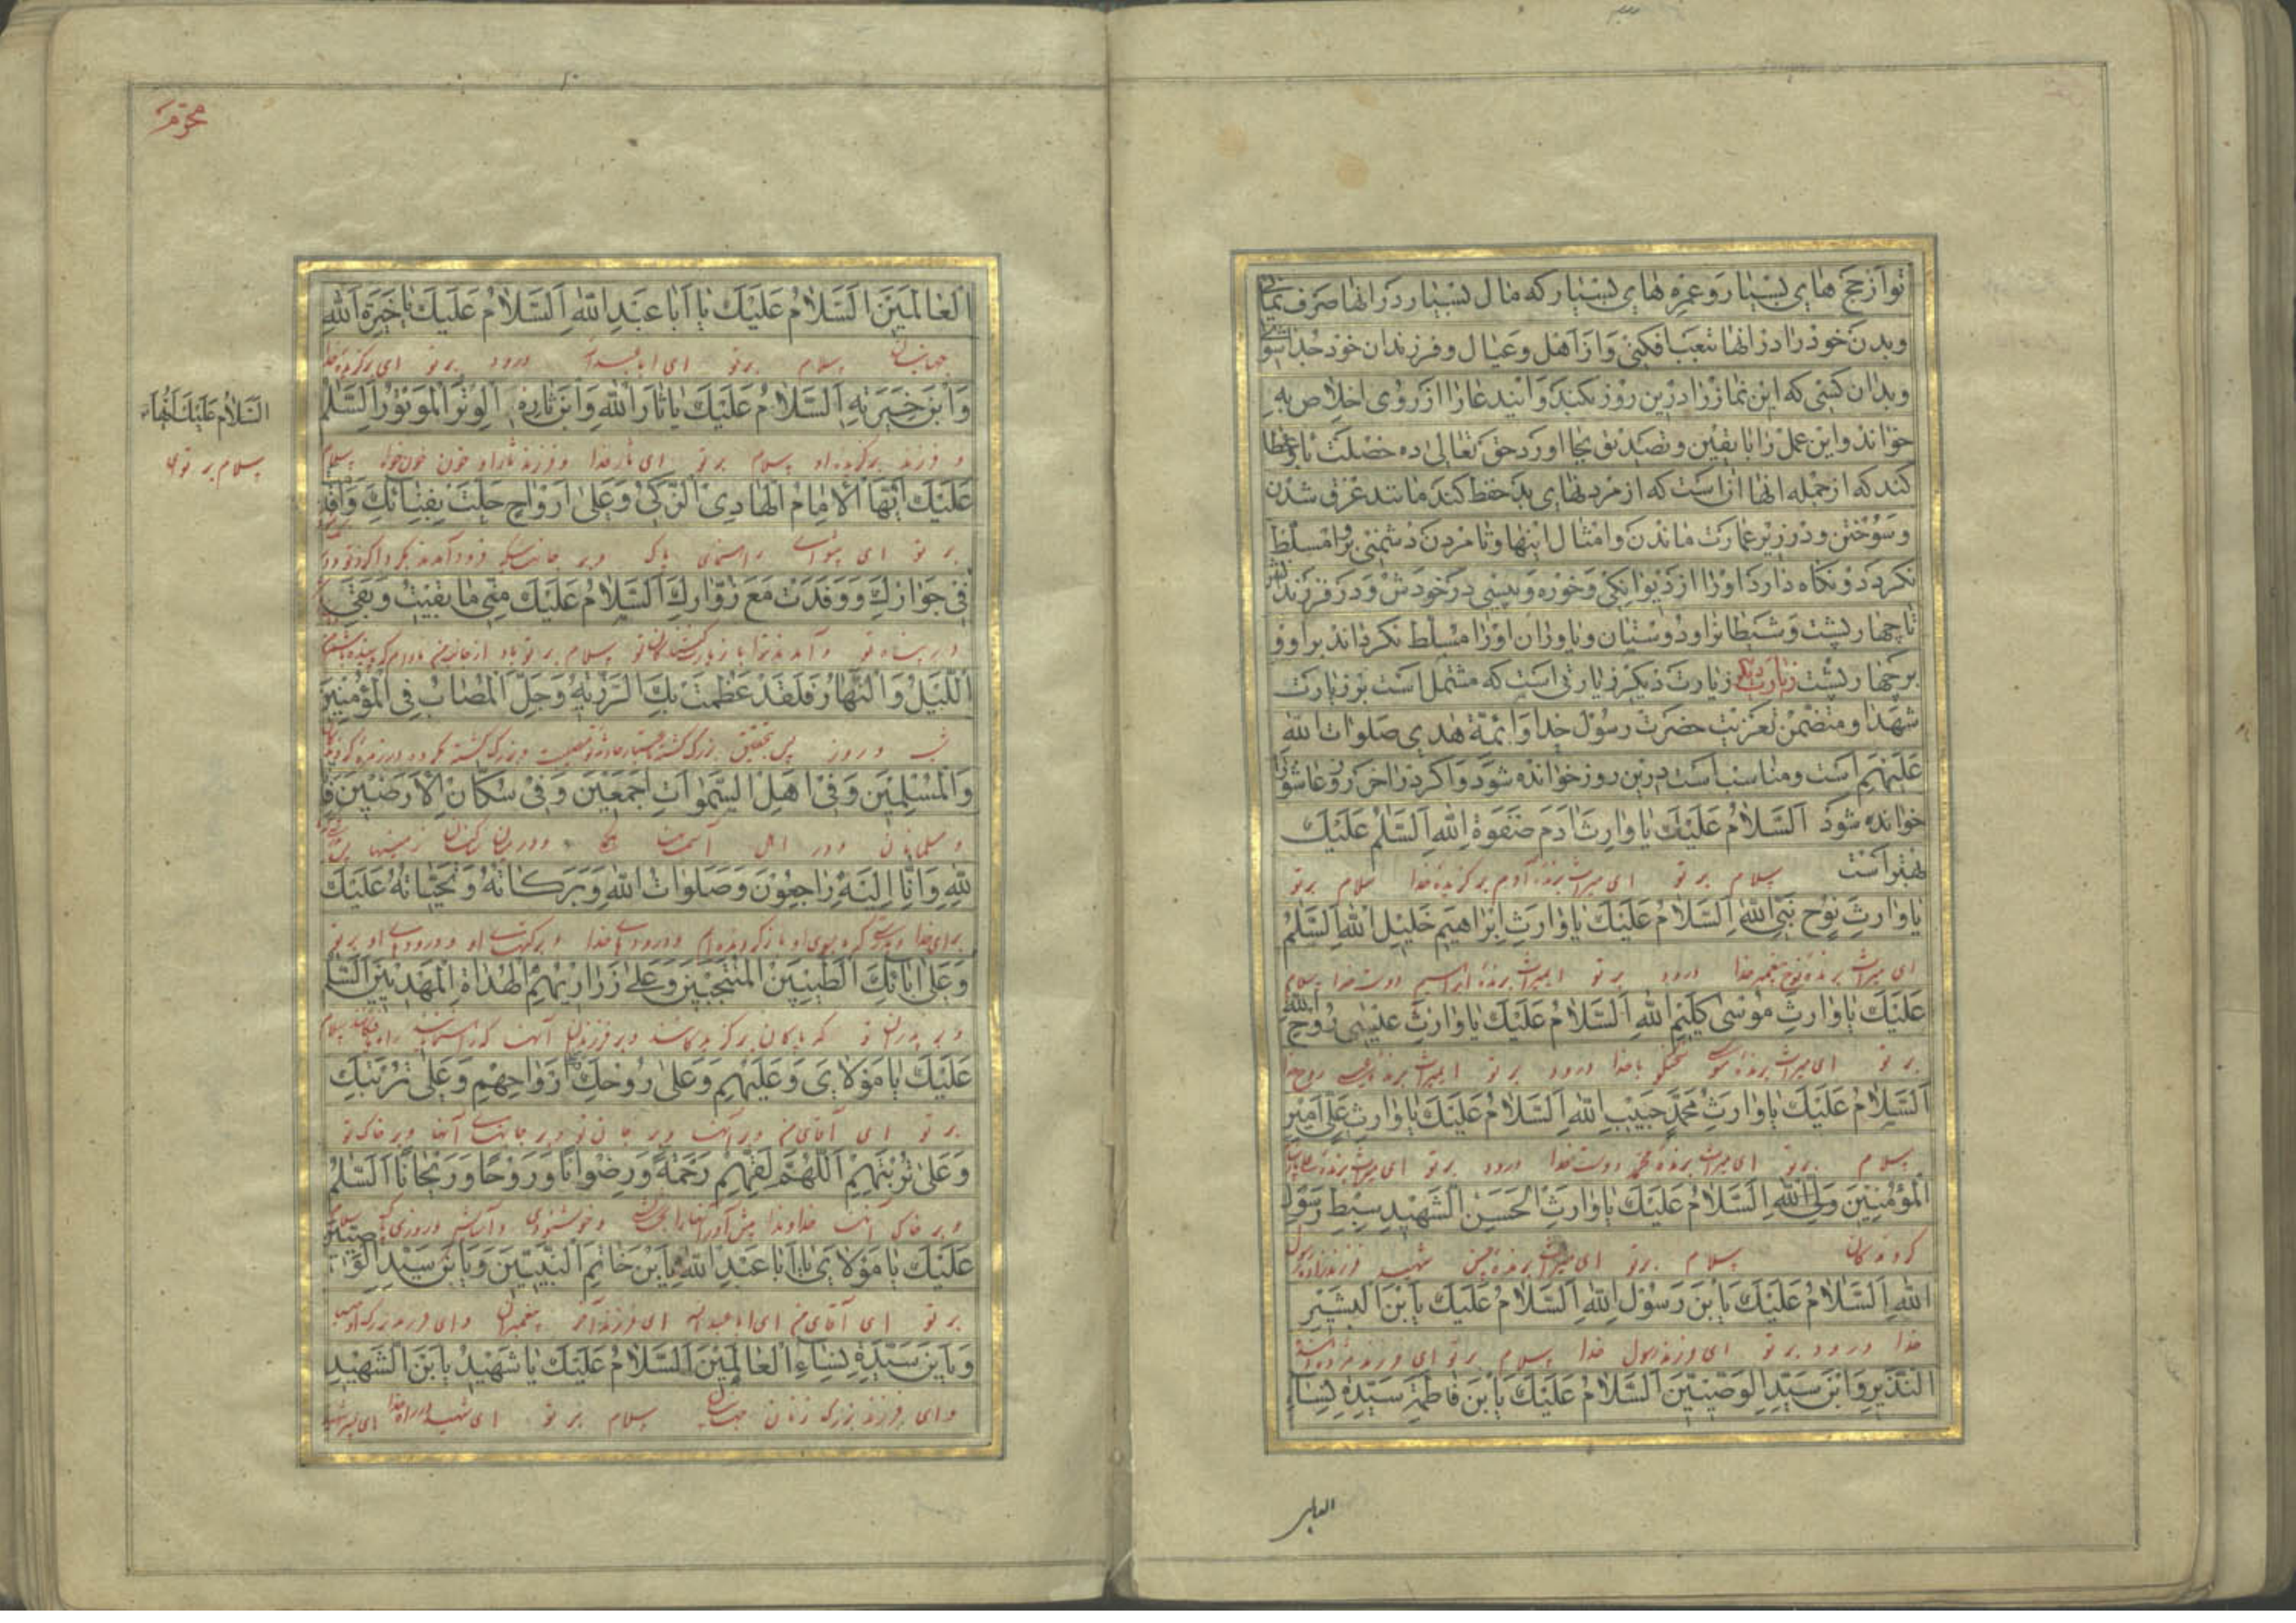 تو از حج های بسیار و عمره های بسیار که مال بسیار در انها صرف نمائی
و بدن خود را در انها بتعب افکنی و از اهل و عیال و فرزندان خود جدا شوی
و بدان کسی که این نماز را درین روز بکند و ایند عا را از روی اخلاص به
خواند و این عمل را با یقین و تصدیق بجا اورد حق تعالی ده خصلت باو عطا
کند که از جمله انها انست که از مردنهای بد حفظ کند مانند غرق شدن
و سوختن و در زیر عمارت ماندن و امثال اینها و تا مردن دشمنی بر او مسلط
نکردد و نکاه دارد او را از دیوانکی و خوره و پیسی در خودش و در فرزندانش
تا چهار پشت و شیطان را و دوستان و یاوران او را مسلط نکرداند بر او و
بر چهار پشت زیارت دیگر زیارت دیکر زیارتی است که مشتمل است بر زیارت
شهدا و متضمن تعزیت حضرت رسول خدا و ائمة هدی صلوات الله
علیهم است و مناسب است درین روز خوانده شود و اکر در اخر روز عاشورا
خوانده شود اَلسَّلامُ عَلَيْكَ يا وارِثَ ادَمَ صَفْوَةِ اللهِ اَلسَّلمُ عَلَيْكَ
بهتر است سلام بر تو ای میراث برنده آدم برگزیده خدا سلام بر تو
يا وارِثَ نوُحٍ نَبِيِّ اللهِ اَلسَّلامُ عَلَيْكَ يا وارِثَ اِبْراهيمَ خَليلِ اللهِ اَلسَّلمُ
ای میراث برنده نوح پیغمبر خدا درود بر تو ایمیراث برنده ابراهیم دوست خدا سلام
عَلَيْكَ يا وارِثَ موُسى كَليمِ اللهِ اَلسَّلامُ عَلَيْكَ يا وارِثَ عيسى روُحِ اللهِ
بر تو ای میراث برنده موسی سخنگو با خدا درود بر تو ایمیراث برنده عیسی روح خدا
اَلسَّلامُ عَلَيْكَ يا وارِثَ مُحَمَّدٍ حَبيبِ اللهِ اَلسَّلامُ عَلَيْكَ يا وارِثَ عَلِيٍّ اَميرِ
سلام بر تو ای میراث برنده محمد دوست خدا درود بر تو ای میراث برنده
الْمُؤْمِنينَ وَلِيِّ اللهِ اَلسَّلامُ عَلَيْكَ يا وارِثَ الْحَسَنِ الشَّهيدِ سِبْطِ رَسوُلِ
سلام بر تو ای میراث برنده حسن شهید فرزندزاده رسول
اللهِ اَلسَّلامُ عَلَيْكَ يَا بْنَ رَسوُلِ اللهِ اَلسَّلامُ عَلَيْكَ يَا بْنَ الْبَشيرِ
خدا درود بر تو ای فرزند رسول خدا سلام بر تو ای فرزند
النَّذيرِ وَابْنَ سَيِّدِ الْوَصِيّينَ اَلسَّلامُ عَلَيْكَ يَا بْنَ فاطِمَةَ سَيِّدَةِ نِساءِ
العالمین
محرم
الْعالَمينَ اَلسَّلامُ عَلَيْكَ يا اَبا عَبْدِ اللهِ اَلسَّلامُ عَلَيْكَ يا خِيَرَةَ اللهِ
جهانیان سلام بر تو ای ابا عبدالله درود بر تو ای برگزیده خدا
وَابْنَ خِيَرَتِهِ اَلسَّلامُ عَلَيْكَ يا ثارَ اللهِ وَابْنَ ثارِهِ اَلْوِتْرَ الْمَوْتوُرَ اَلسَّلمُ
و فرزند برگزیده او سلام بر تو ای ثار خدا و فرزند ثار او خون خون خواه سلام
السَّلامُ عَلَيْكَ اَيُّهَا
سلام بر تو ای
عَلَيْكَ اَيُّهَا الْاِمامُ الْهادِى الزَّكِيُّ وَعَلى اَرْواحٍ حَلَّتْ بِفِنائِكَ وَاَقامَتْ
بر تو ای پیشوای راهنمای پاک و بر جانهائیکه فرود آمدند
في جِوارِكَ وَوَفَدَتْ مَعَ زُوّارِكَ اَلسَّلامُ عَلَيْكَ مِنّي ما بَقيتُ وَبَقِيَ
در پناه تو و آمدند ترا با زیارت کنندگان تو سلام بر تو باد از جانب من مادام که
اللَّيْلُ وَالنَّهارُ فَلَقَدْ عَظُمَتْ بِكَ الرَّزِيَّةُ وَجَلَّ الْمُصابُ فِي الْمُؤْمِنينَ
شب و روز پس بتحقیق بزرگ گشته
وَالْمُسْلِمينَ وَفي اَهْلِ السَّمواتِ اَجْمَعينَ وَفي سُكّانِ الْاَرَضينَ فَاِنّا
و مسلمانان و در اهل آسمانها همه و در میان ساکنان زمینها پس
لِلّهِ وَاِنّا اِلَيْهِ راجِعوُنَ وَصَلَواتُ اللهِ وَبَرَكاتُهُ وَتَحِيّاتُهُ عَلَيْكَ
برای خدا و بدرستی که بسوی او بازگردنده ایم و درودهای خدا و برکتهای او و درودهای او بر تو
وَعَلى ابائِكَ الطَّيِّبينَ الْمُنْتَجَبينَ وَعَلى ذَراريهِمُ الْهُداةِ الْمَهْدِيّينَ اَلسَّلمُ
و بر پدران تو که پاکان برگزیدگانند و بر فرزندان آنها که راهنمایان سلام
عَلَيْكَ يا مَوْلايَ وَعَلَيْهِمْ وَعَلى روُحِكَ وَعَلى اَرْواحِهِمْ وَعَلى تُرْبَتِكَ
بر تو ای آقای من و بر آنها و بر جان تو و بر جانهای آنها و بر خاک تو
وَعَلى تُرْبَتِهِمْ اَللّهُمَّ لَقِّهِمْ رَحْمَةً وَرِضْوانًا وَرَوْحًا وَرَيْحانًا اَلسَّلمُ
و بر خاک آنها خداوندا پیش آور آنها را و خوشنودی و آسایش و روزی سلام
عَلَيْكَ يا مَوْلايَ يا اَبا عَبْدِ اللهِ يَا بْنَ خاتَمِ النَّبِيّينَ وَيَا بْنَ سَيِّدِ الْوَصِيّينَ
بر تو ای آقای من ای ابا عبدالله ای فرزند آخر پیغمبران و ای فرزند بزرگ اوصیا
وَيَا بْنَ سَيِّدَةِ نِساءِ الْعالَمينَ اَلسَّلامُ عَلَيْكَ يا شَهيدُ يَا بْنَ الشَّهيدِ
و ای فرزند بزرگ زنان جهانیان سلام بر تو ای شهید در راه خدا ای پسر شهید